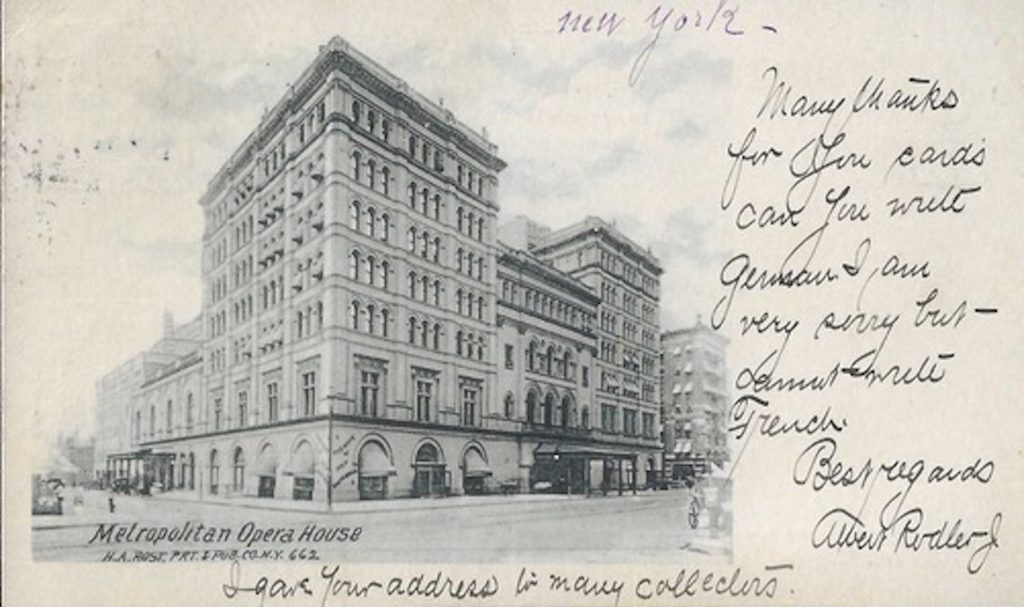 New York -
Many thanks
for You cards
can You write
German I am
very sorry but -
cannot write
French.
Best regards
Albert Rodler J
Metropolitan Opera House
H.A. ROST, PRT. & PUB. CO. N.Y. 662
I gave Your address to many collectors.